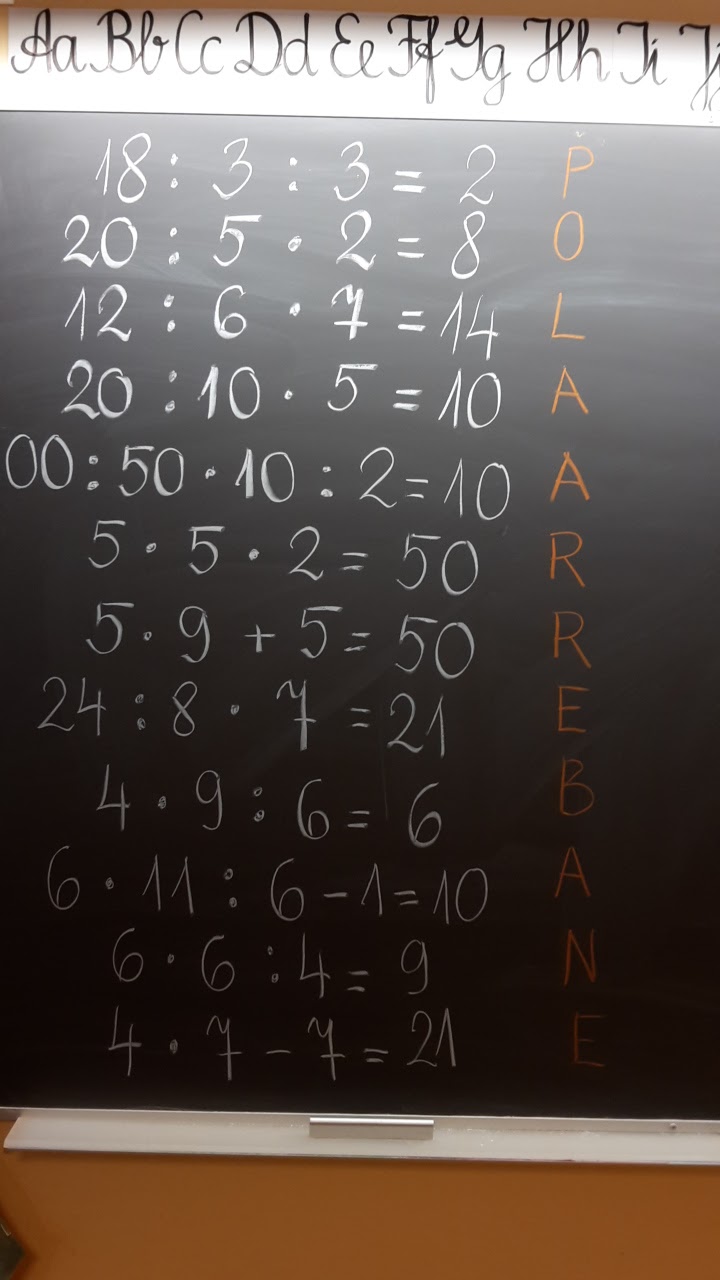 Aa Bb Cc Dd Ee Ff Gg Hh Ii Jj
18 : 3 : 3 = 2 P
20 : 5 · 2 = 8 O
12 : 6 · 7 = 14 L
20 : 10 · 5 = 10 A
00 : 50 · 10 : 2 = 10 A
5 · 5 · 2 = 50 R
5 · 9 + 5 = 50 R
24 : 8 · 7 = 21 E
4 · 9 : 6 = 6 B
6 · 11 : 6 - 1 = 10 A
6 · 6 : 4 = 9 N
4 · 7 - 7 = 21 E